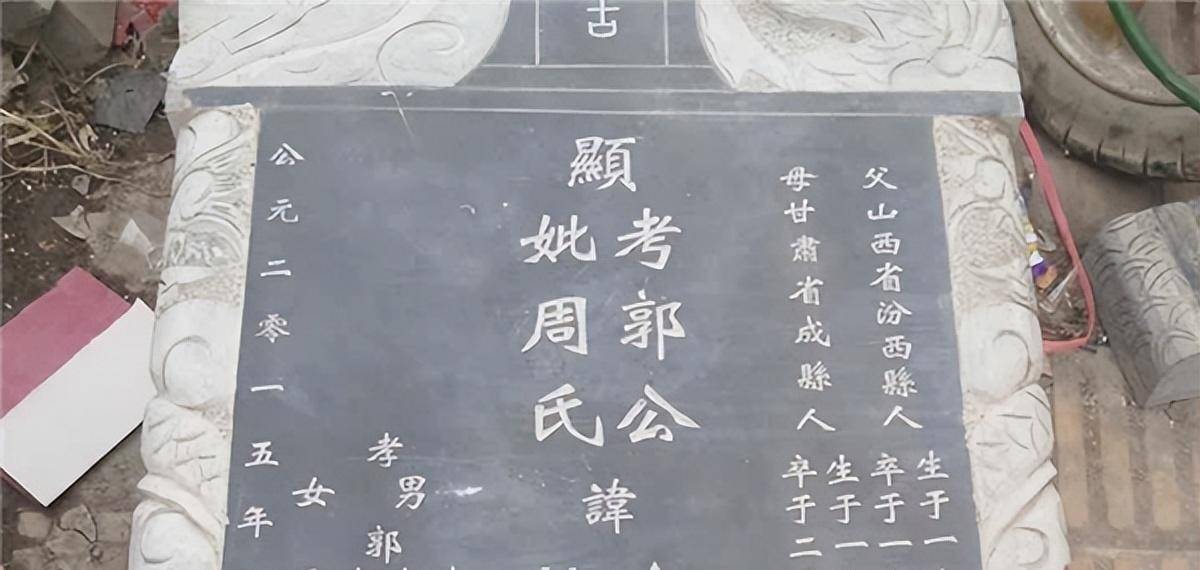 古
父山西省汾西縣人
生于一
卒于一
母甘肅省成縣人
生于一
卒于二
顯
考郭公
妣周氏
諱
孝
男
郭
女
公元二零一五年